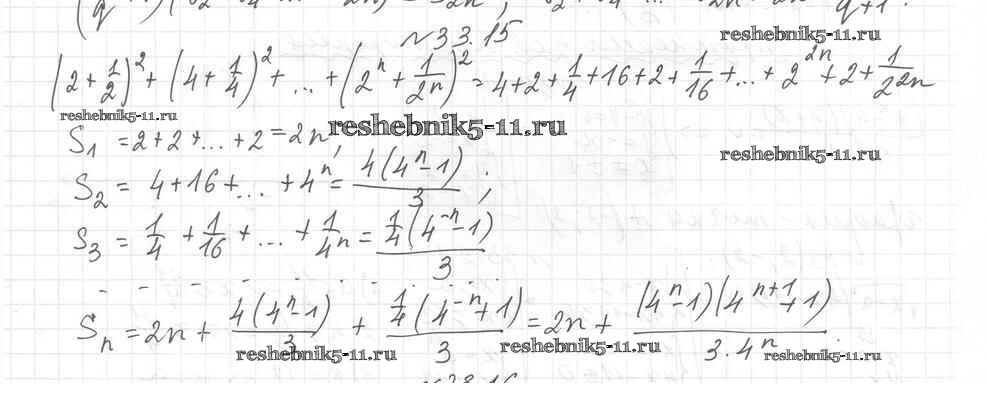 №33.15
reshebnik5-11.ru
(2 + 1/2)² + (4 + 1/4)² + ... + (2ⁿ + 1/2ⁿ)² = 4+2+1/4+16+2+1/16+...+2²ⁿ+2+1/2²ⁿ
reshebnik5-11.ru
S₁ = 2+2+...+2 = 2n,
reshebnik5-11.ru
reshebnik5-11.ru
S₂ = 4+16+...+4ⁿ = 4(4ⁿ-1)/3 ;
S₃ = 1/4 + 1/16 + ... + 1/4ⁿ = 1/4(4⁻ⁿ-1)/3
Sₙ = 2n + 4(4ⁿ-1)/3 + 1/4(4⁻ⁿ+1)/3 = 2n + (4ⁿ-1)(4ⁿ⁺¹+1)/3·4ⁿ
reshebnik5-11.ru
reshebnik5-11.ru
reshebnik5-11.ru